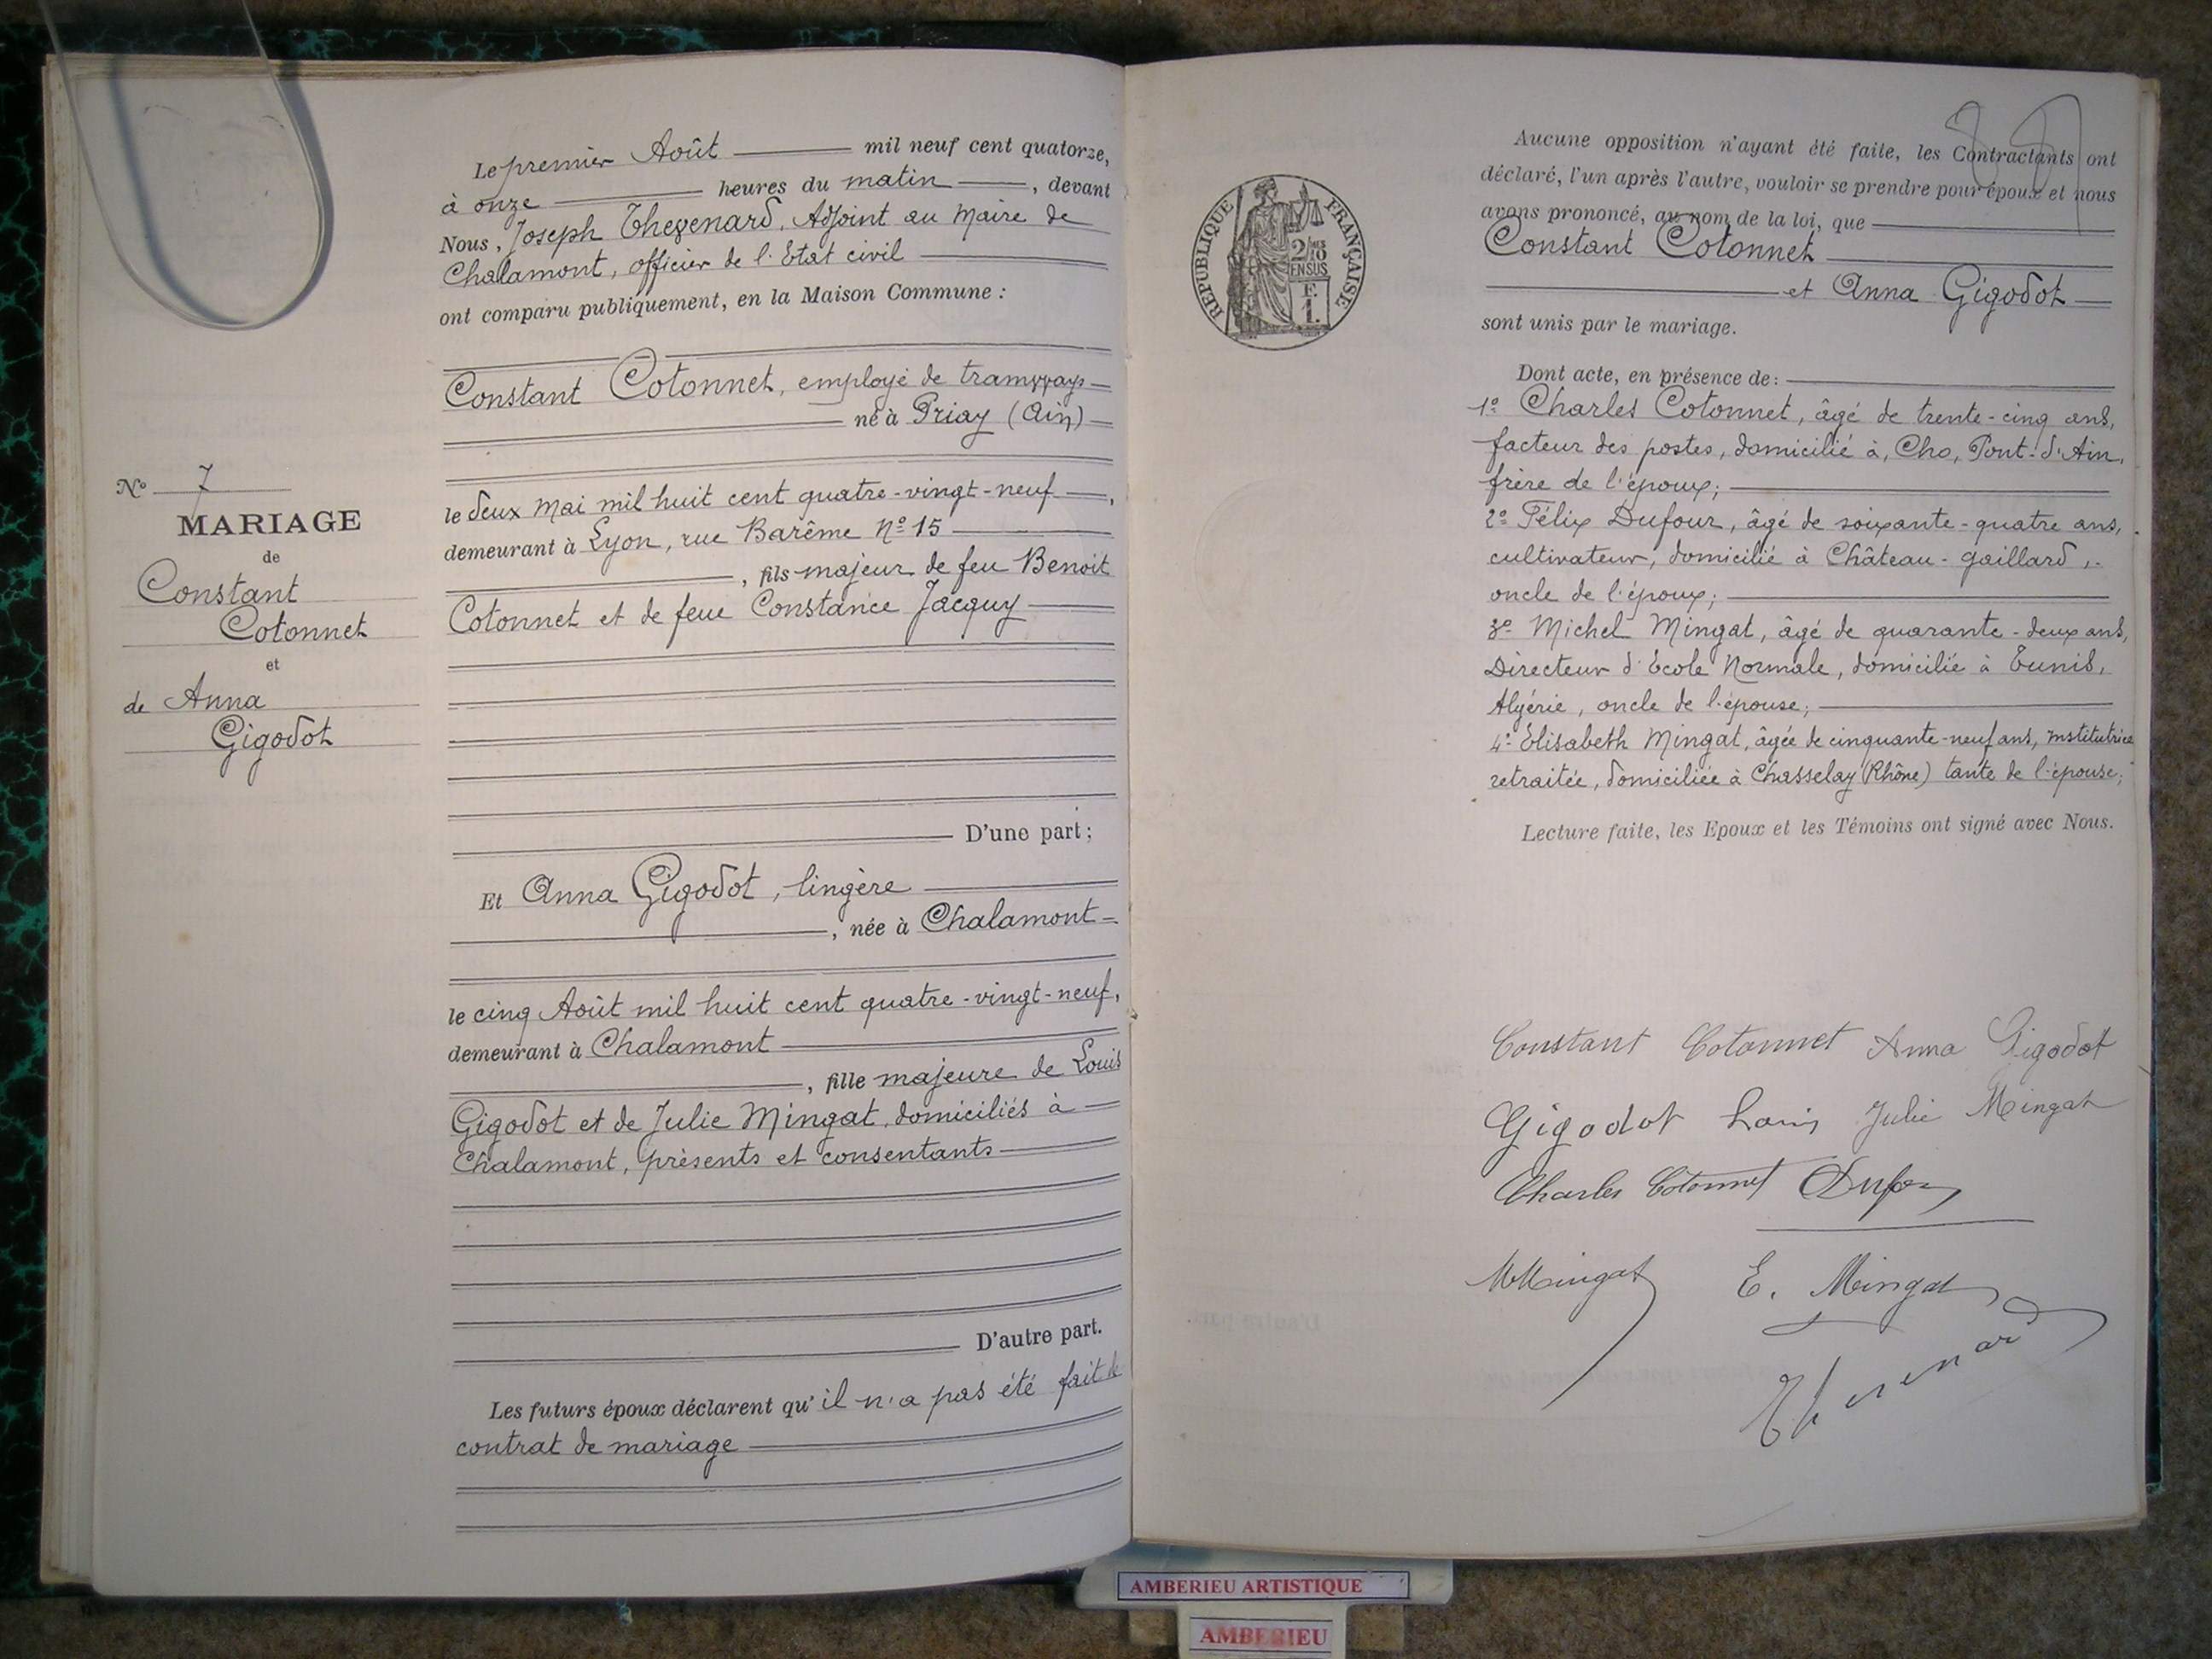 Nº 7
MARIAGE
de
Constant
Cotonnet
et
de Anna
Gigodot
Le premier Août mil neuf cent quatorze,
à onze heures du matin, devant
Nous, Joseph Thevenard, Adjoint au Maire de
Chalamont, officier de l'Etat civil
ont comparu publiquement, en la Maison Commune :
Constant Cotonnet, employé de tramways
né à Priay (Ain)
le deux Mai mil huit cent quatre-vingt-neuf,
demeurant à Lyon, rue Barême Nº 15
, fils majeur de feu Benoit
Cotonnet et de feue Constance Jacquy
D'une part ;
Et Anna Gigodot, lingère
, née à Chalamont
le cinq Août mil huit cent quatre-vingt-neuf,
demeurant à Chalamont
, fille majeure de Louis
Gigodot et de Julie Mingat, domiciliés à
Chalamont, présents et consentants
D'autre part.
Les futurs époux déclarent qu'il n'a pas été fait de
contrat de mariage
RÉPUBLIQUE FRANÇAISE
2/10
EN SUS
F.
1.
Aucune opposition n'ayant été faite, les Contractants ont
déclaré, l'un après l'autre, vouloir se prendre pour époux et nous
avons prononcé, au nom de la loi, que
Constant Cotonnet
et Anna Gigodot
sont unis par le mariage.
Dont acte, en présence de :
1º Charles Cotonnet, âgé de trente-cinq ans,
facteur des postes, domicilié à, Cho, Pont-d'Ain,
frère de l'époux;
2º Félix Dufour, âgé de soixante-quatre ans,
cultivateur, domicilié à Château-gaillard,
oncle de l'époux;
3º Michel Mingat, âgé de quarante-deux ans,
Directeur d'Ecole Normale, domicilié à Tunis,
Algérie, oncle de l'épouse;
4º Elisabeth Mingat, âgée de cinquante-neuf ans, Institutrice
retraitée, domiciliée à Chasselay (Rhône) tante de l'épouse;
Lecture faite, les Epoux et les Témoins ont signé avec Nous.
Constant Cotonnet Anna Gigodot
Gigodot Louis Julie Mingat
Charles Cotonnet Dufour
M Mingat E. Mingat
Thevenard
AMBERIEU ARTISTIQUE
AMBERIEU